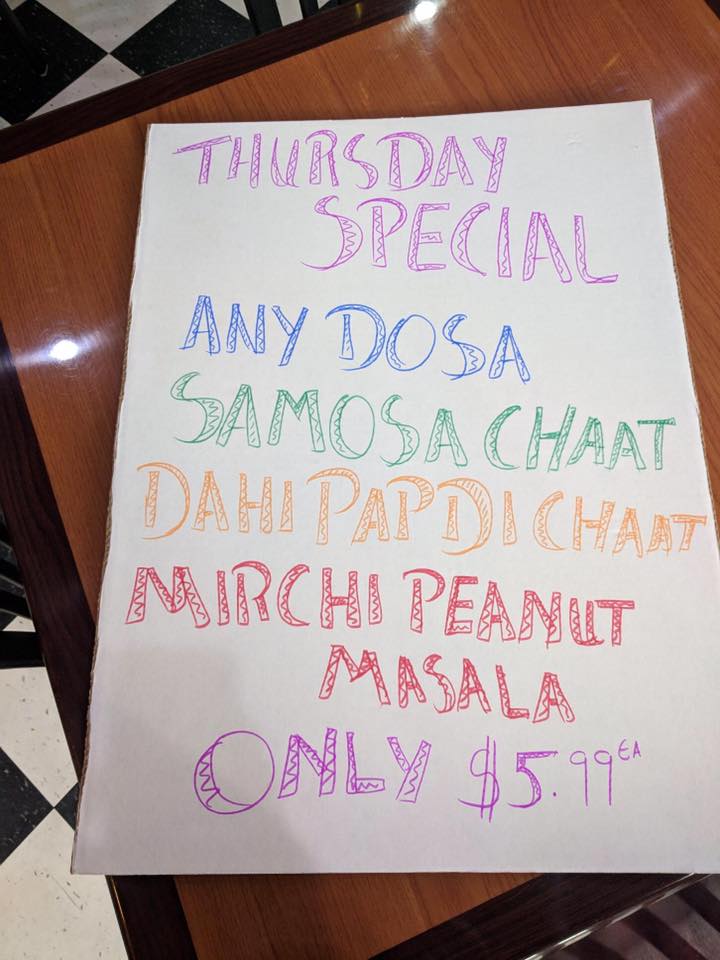 THURSDAY
SPECIAL
ANY DOSA
SAMOSA CHAAT
DAHI PAPDI CHAAT
MIRCHI PEANUT
MASALA
ONLY $5.99 EA